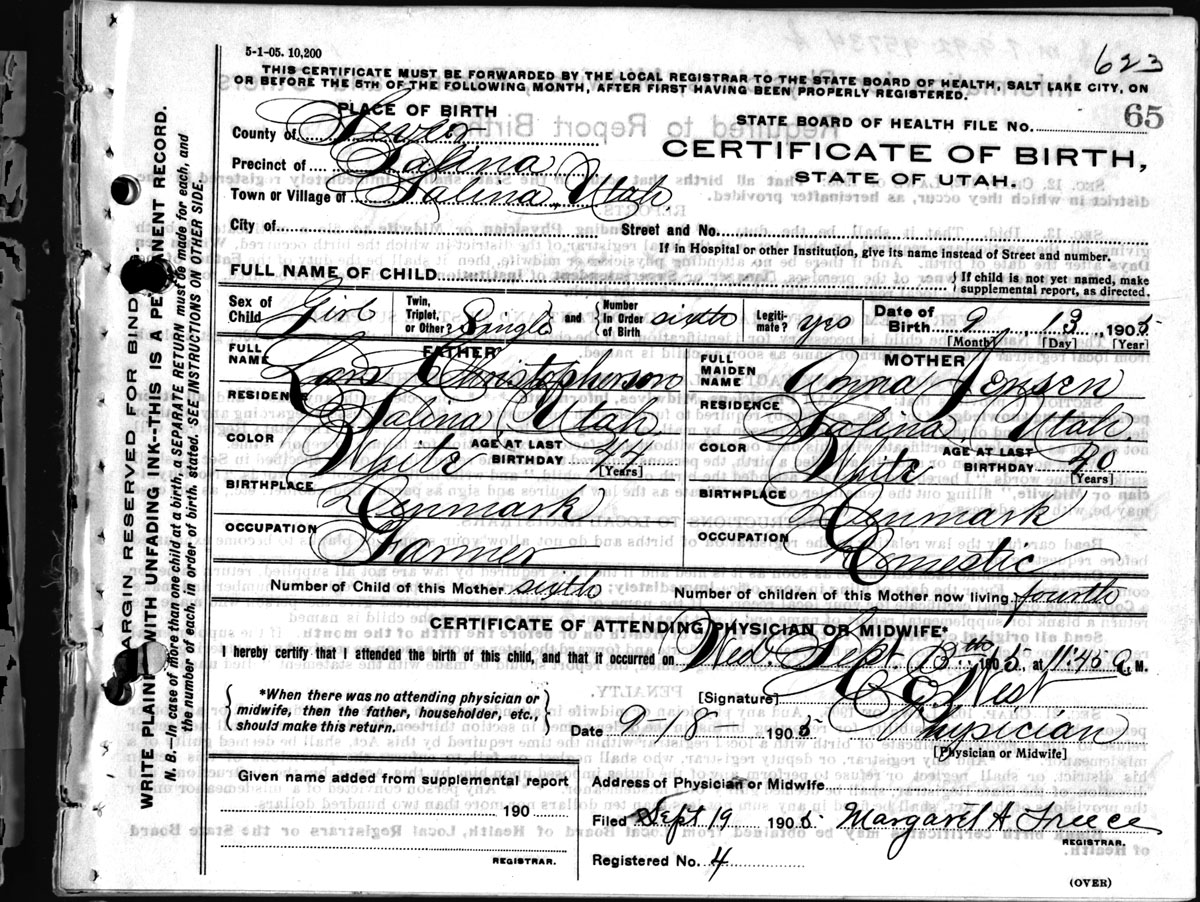 5-1-05. 10,200
623
THIS CERTIFICATE MUST BE FORWARDED BY THE LOCAL REGISTRAR TO THE STATE BOARD OF HEALTH, SALT LAKE CITY, ON
OR BEFORE THE 5TH OF THE FOLLOWING MONTH, AFTER FIRST HAVING BEEN PROPERLY REGISTERED.
PLACE OF BIRTH
STATE BOARD OF HEALTH FILE No. 65
County of Sevier
CERTIFICATE OF BIRTH,
STATE OF UTAH.
Precinct of Salina
Town or Village of Salina, Utah
City of Street and No.
If in Hospital or other Institution, give its name instead of Street and number.
FULL NAME OF CHILD { If child is not yet named, make supplemental report, as directed.
Sex of Child Girl Twin, Triplet, or Other? Single and { Number In Order of Birth sixth Legiti-mate? yes Date of Birth 9, 13, 1905
[Month] [Day] [Year]
FATHER MOTHER
FULL NAME Lars Christopherson FULL MAIDEN NAME Anna Jensen
RESIDENCE Salina, Utah RESIDENCE Salina, Utah.
COLOR White AGE AT LAST BIRTHDAY 44 [Years] COLOR White AGE AT LAST BIRTHDAY 40 [Years]
BIRTHPLACE Denmark BIRTHPLACE Denmark
OCCUPATION Farmer OCCUPATION Domestic
Number of Child of this Mother sixth Number of children of this Mother now living fourth
CERTIFICATE OF ATTENDING PHYSICIAN OR MIDWIFE*
I hereby certify that I attended the birth of this child, and that it occurred on Wed. Sept. 13th 1905, at 11:45 a. M.
*When there was no attending physician or midwife, then the father, householder, etc., should make this return.
[Signature] West
Physician
[Physician or Midwife]
Date 9-18- 1905
Given name added from supplemental report
190
REGISTRAR.
Address of Physician or Midwife
Filed Sept 19 1905. Margaret A Freece
REGISTRAR.
Registered No. 4
(OVER)
MARGIN RESERVED FOR BINDING.
WRITE PLAINLY WITH UNFADING INK--THIS IS A PERMANENT RECORD.
N. B.--In case of more than one child at a birth, a SEPARATE RETURN must be made for each, and
the number of each, in order of birth, stated. SEE INSTRUCTIONS ON OTHER SIDE.